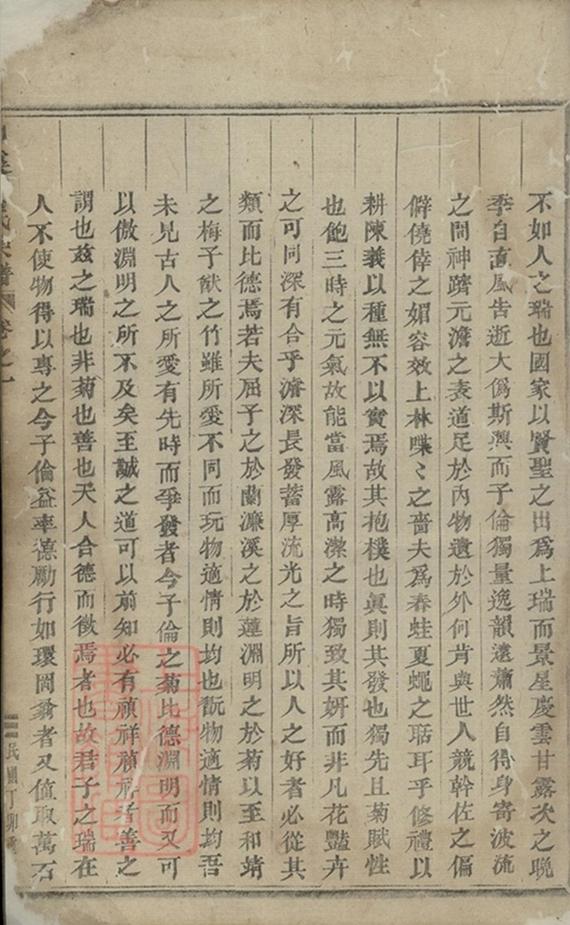 不如人之瑞也國家以賢聖之出爲上瑞而景星慶雲甘露次之晩
季自直風告逝大僞斯興而子倫獨量逸韻遠蕭然自得身寄波流
之間神躋元澹之表道足於內物遺於外何肯與世人競幹佐之偏
僻僥倖之媚容效上林喋〻之嗇夫爲春蛙夏蠅之聒耳乎修禮以
耕陳義以種無不以實焉故其抱樸也眞則其發也獨先且菊賦性
也飽三時之元氣故能當風露高潔之時獨致其妍而非凡花豔卉
之可同深有合乎濬深長發蓄厚流光之旨所以人之好者必從其
類而比德焉若夫屈子之於蘭濂溪之於蓮淵明之於菊以至和靖
之梅子猷之竹雖所愛不同而玩物適情則均也翫物適情則均吾
未見古人之所愛有先時而爭發者今子倫之菊比德淵明而又可
以傲淵明之所不及矣至誠之道可以前知必有禎祥禎祥者善之
謂也茲之瑞也非菊也善也天人合德而徵焉者也故君子之瑞在
人不使物得以專之今子倫益率德勵行如環岡翁者又值取萬石
氏宗譜 卷之一
民國丁卯